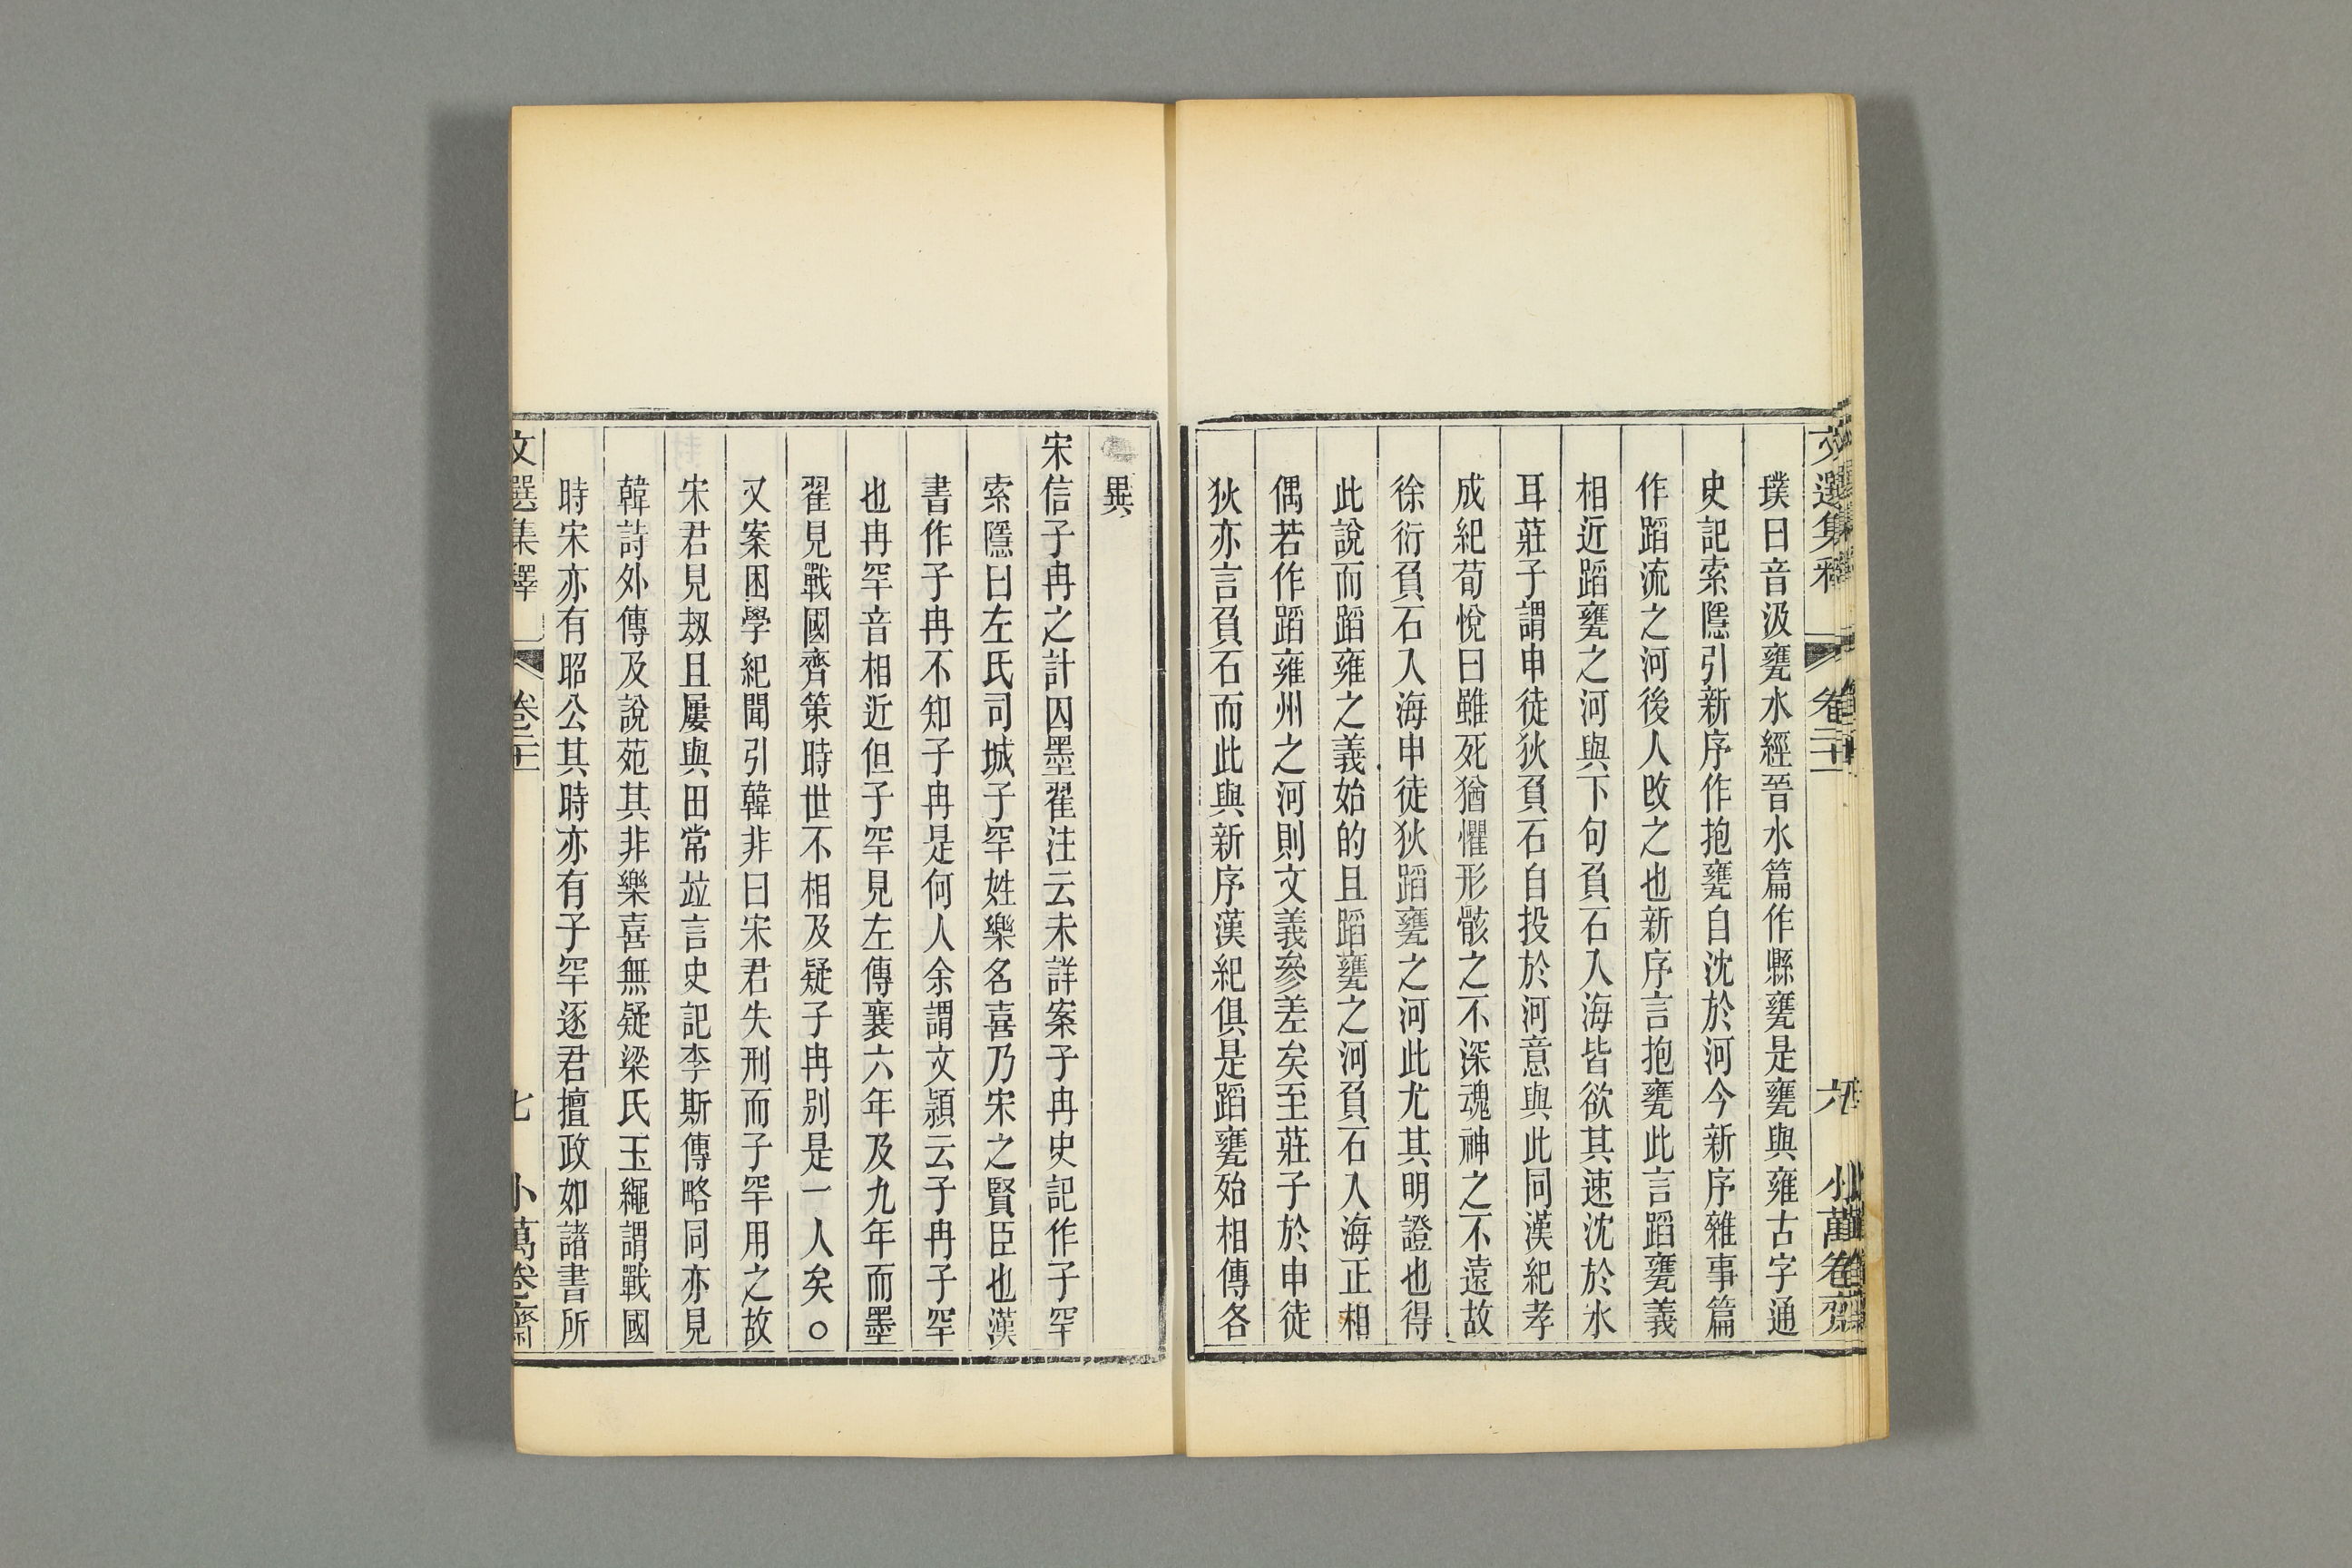 文選集釋 卷二十一 六 小萬卷齋
璞曰音汲甕水經晉水篇作縣甕是甕與雍古字通
史記索隱引新序作抱甕自沈於河今新序雜事篇
作蹈流之河後人改之也新序言抱甕此言蹈甕義
相近蹈甕之河與下句負石入海皆欲其速沈於水
耳莊子謂申徒狄負石自投於河意與此同漢紀孝
成紀荀悅曰雖死猶懼形骸之不深魂神之不遠故
徐衍負石入海申徒狄蹈甕之河此尤其明證也得
此說而蹈雍之義始的且蹈甕之河負石入海正相
偶若作蹈雍州之河則文義參差矣至莊子於申徒
狄亦言負石而此與新序漢紀俱是蹈甕殆相傳各
異
宋信子冉之計囚墨翟注云未詳案子冉史記作子罕
索隱曰左氏司城子罕姓樂名喜乃宋之賢臣也漢
書作子冉不知子冉是何人余謂文潁云子冉子罕
也冉罕音相近但子罕見左傳襄六年及九年而墨
翟見戰國齊策時世不相及疑子冉別是一人矣○
又案困學紀聞引韓非曰宋君失刑而子罕用之故
宋君見刼且屢與田常竝言史記李斯傳略同亦見
韓詩外傳及說苑其非樂喜無疑梁氏玉繩謂戰國
時宋亦有昭公其時亦有子罕逐君擅政如諸書所
文選集釋 卷二十一 七 小萬卷齋